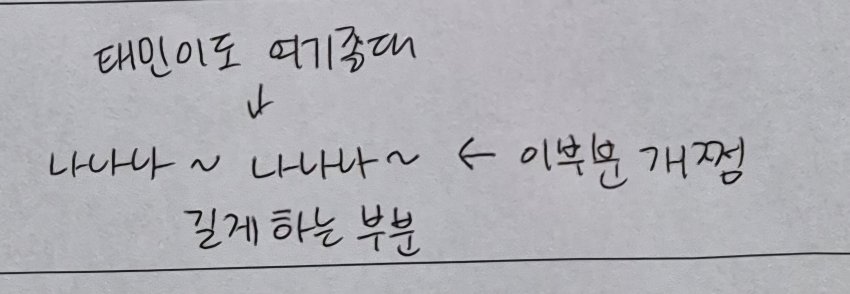 태민이도 여기좋대
↓
나나나 ~ 나나나~ ← 이부분 개쩜
길게 하는 부분